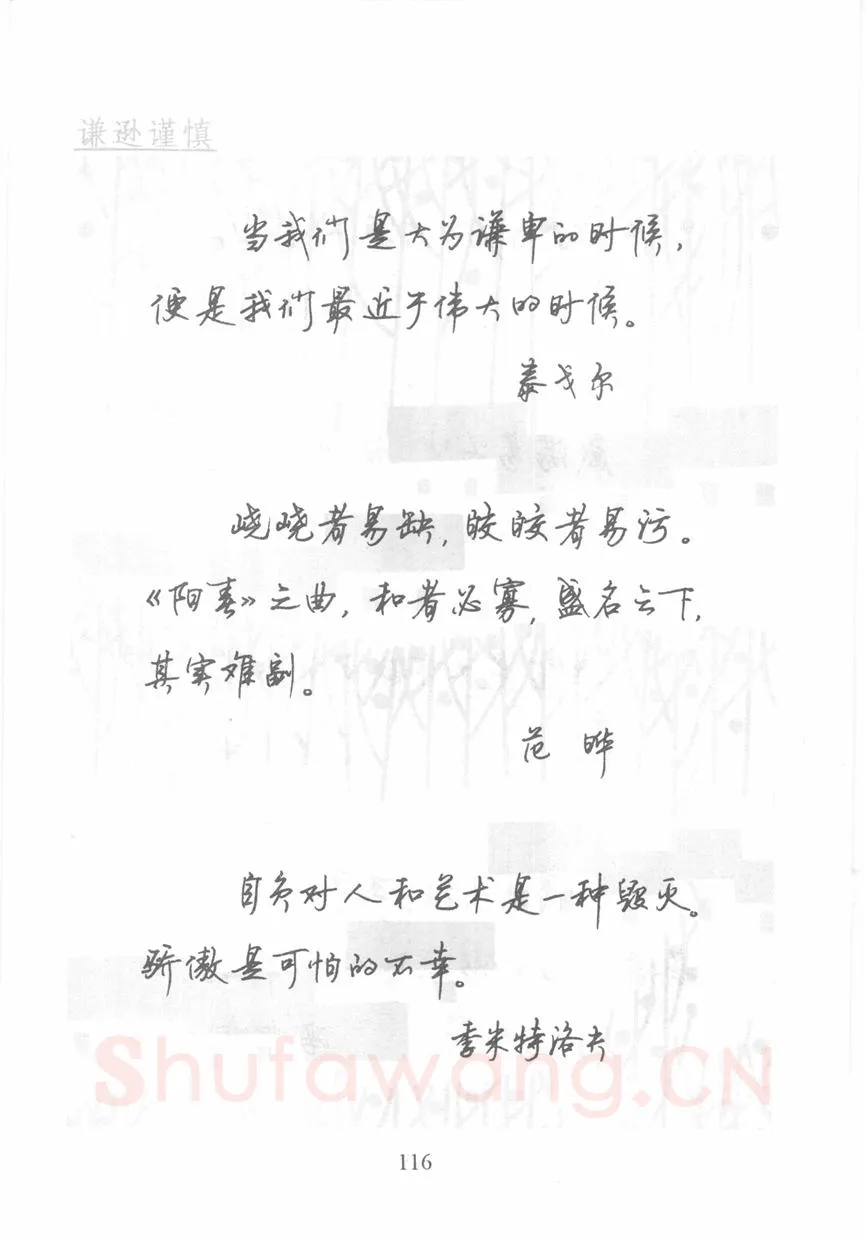 谦逊谨慎
当我们是大为谦卑的时候，
便是我们最近于伟大的时候。
泰戈尔
峣峣者易缺，皎皎者易污。
《阳春》之曲，和者必寡，盛名之下，
其实难副。
范晔
自负对人和艺术是一种毁灭。
骄傲是可怕的不幸。
季米特洛夫
Shufawang.CN
116